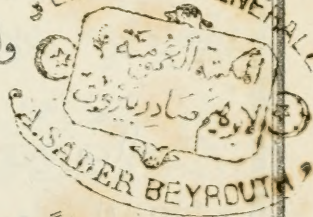 GENERALE
المكتبة العمومية
لابرهيم صادر بيروت
A. SADER BEYROUTH